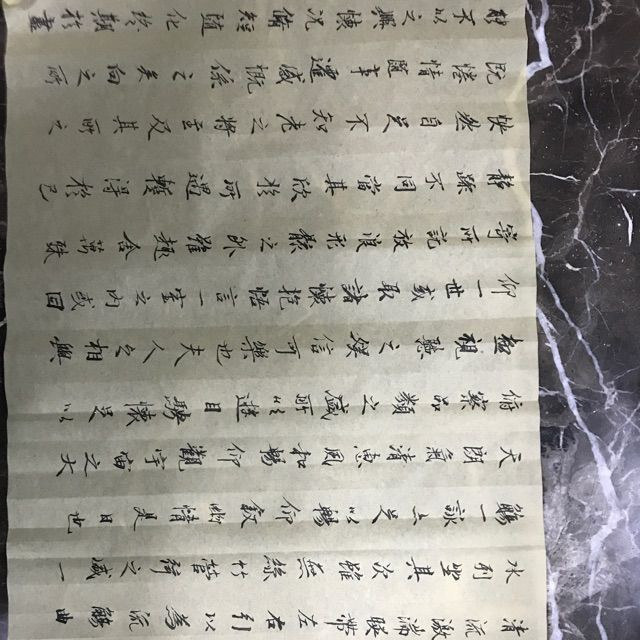 清流激湍暎帶左右引以為流觴曲
水列坐其次雖無絲竹管弦之盛一
觴一詠亦足以暢敘幽情是日也
天朗氣清惠風和暢仰觀宇宙之大
俯察品類之盛所以遊目騁懷足以
極視聽之娛信可樂也夫人之相與
仰一世或取諸懷抱悟言一室之內或因
寄所託放浪形骸之外雖趣舍萬殊
靜躁不同當其欣於所遇蹔得於己
快然自足不知老之將至及其所之
既惓情隨事遷感慨係之矣向之所
猶不以之興懷況脩短隨化終期於盡